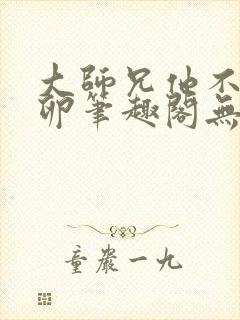 大師兄他不
卯筆趣閣無
童嚴一九